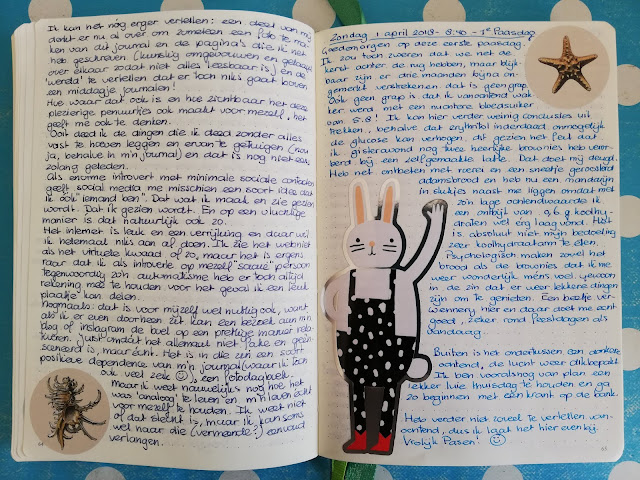 Ik kan het nog erger vertellen: een deel van mij
denkt er nu al over om zometeen een foto te ma-
ken van dit journal en de pagina's die ik net
heb geschreven (kunstig omgevouwen en gedraaid
over elkaar zodat niet alles leesbaar is) en de
'wereld' te vertellen dat er toch niks gaat boven
een middagje journalen!
Hoe waar dat ook is en hoe zichtbaar het deze
plezierige penuurtjes ook maakt voor mezelf, het
geeft me ook te denken.
Ooit deed ik de dingen die ik deed zonder alles
vast te hoeven leggen en ervan te getuigen (nou
ja, behalve in m'n journal) en dat is nog niet eens
zolang geleden.
Als enorme introvert met minimale sociale contacten
geeft social media me misschien een soort idee dat
ik ook "iemand ben". Dat wat ik maak en zie gezien
wordt. Dat ik gezien word. En op een vluchtige
manier is dat natuurlijk ook zo.
Het internet is leuk en een verrijking en daar wil
ik helemaal niks aan af doen. Ik zie het web niet
als het virtuele kwaad of zo, maar het is ergens
raar dat ik als introverte op mezelf "saaie" persoon
tegenwoordig zo'n automatisme heb er toch altijd
rekening mee te houden voor het geval ik een leuk
plaatje kan delen.
Nogmaals: dat is voor mijzelf wel nuttig ook, want
als ik er even doorheen zit kan een bezoek aan m'n
blog of instagram de boel op een prettige manier rela-
tiveren. Juist omdat het allemaal niet fake en geën-
sceneerd is, maar écht. Het is in die zin een soort
positieve dependance van m'n journal (waar ik toch
ook veel zeik ☺), een fotodagboek.
Maar ik weet nauwelijks nog hoe het
was 'analoog' te leven en m'n leven écht
voor mezelf te houden. Ik weet niet
of dat slecht is, maar ik kan soms
wel naar die (vermeende?) eenvoud
verlangen.
64
Zondag 1 april 2018 - 8:40 - 1e Paasdag
Goedemorgen op deze eerste paasdag.
Ik zou toch zweren dat we net de
kerst achter de rug hebben, maar blijk-
baar zijn er drie maanden bijna on-
gemerkt verstreken en dat is geen grap.
Ook geen grap is dat ik vanochtend wak-
ker werd met een nuchtere bloedsuiker
van 5.8! Ik kan hier verder weinig conclusies uit
trekken, behalve dat erythritol inderdaad onmogelijk
de glucose kan verhogen, dit gezien het feit dat
ik gisteravond nog twee heerlijke brownies heb veror-
berd bij een zelfgemaakte latte. Dat doet mij deugd.
Heb net ontbeten met roerei en een sneetje geroosterd
adamsbrood en heb nu een mandarijn
in stukjes naast me liggen omdat met
zo'n lage ochtendwaarde ik
een ontbijt van 9,6 g koolhy-
draten wel erg laag vond. Het
is absoluut niet mijn bedoeling
zeer koolhydraatarm te eten.
Psychologisch maken zowel het
brood als de brownies dat ik me
weer wonderlijk méns voel, gewoon
in de zin dat er weer lekkere dingen
zijn om te genieten. Een beetje ver-
wennerij hier en daar doet me echt
goed, zeker rond feestdagen als
vandaag.
Buiten is het ondertussen een donkere
ochtend, de lucht weer dikbepakt.
Ik ben vooralsnog van plan een
lekker luie thuisdag te houden en ga
zo beginnen met een krant op de bank.
Heb verder niet zoveel te vertellen van-
ochtend, dus ik laat het hier even bij.
Vrolijk Pasen! ☺
65